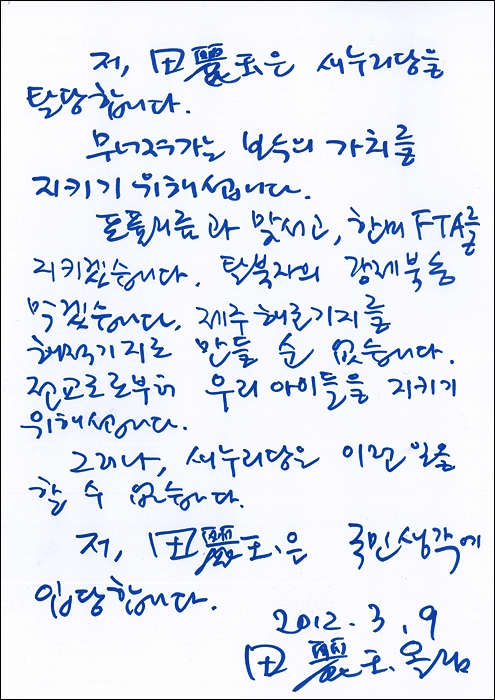 저, 田麗玉은 새누리당을
탈당합니다.
무너져가는 보수의 가치를
지키기 위해섭니다.
포퓰리즘과 맞서고, 한미 FTA를
지키겠습니다. 탈북자의 강제북송
막겠습니다. 제주해군기지를
해적기지로 만들 순 없습니다.
전교조로부터 우리 아이들을 지키기
위해섭니다.
그러나, 새누리당은 이런 일을
할 수 없습니다.
저, 田麗玉은 국민생각에
입당합니다.
2012. 3. 9
田麗玉 올림